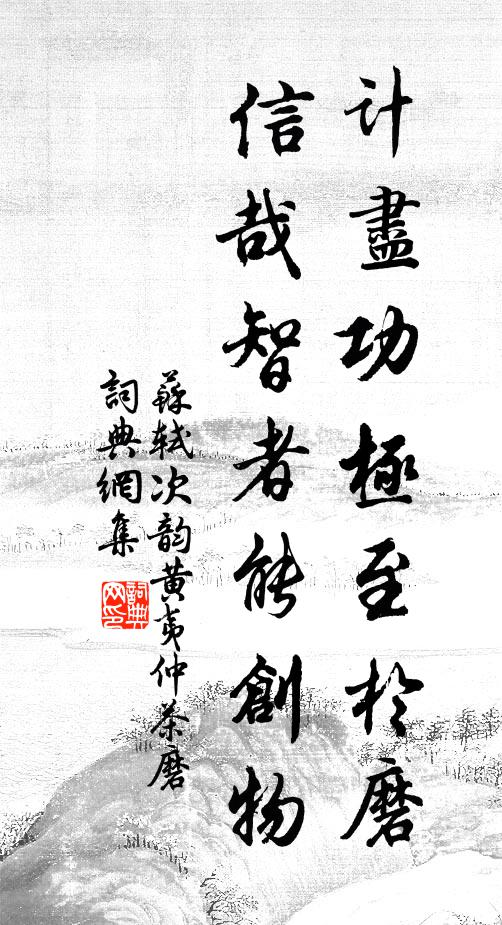 计盡功極至於磨
信哉智者能創物
蘇軾次韵黄夷仲茶磨
詞典網集
詞典網印